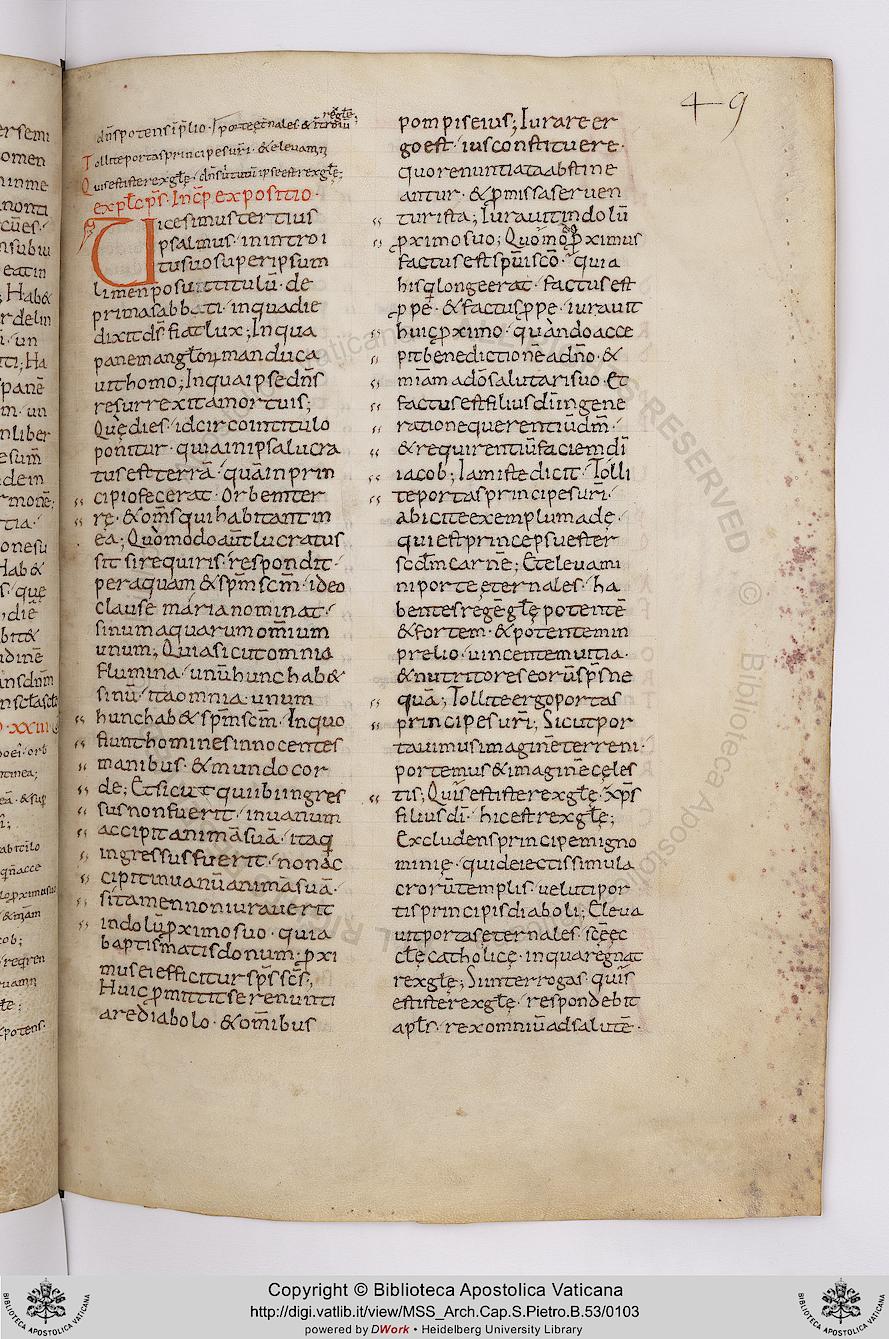 49
dñspotensiplio· portęęṫnales & introiu
regłe;
Tolliteportasprincipesuri· & eleuamn
Quisestisterexglę· dñsuirtutũ ipseestrexglę;
expłc ps· Incp expositio·
Uicesimustertius
psalmus· inintroi
tusuosuperipsum
limenposuittitulũ· de
primasabbati· inquadie
dixitds fiatlux; Inqua
panemanglorummanduca
uithomo; Inquaipsedñs
resurrexitamortuis;
Quędies· idcircointitulo
ponitur· quiainipsalucra
tusestterrã· quãinprin
cipiofecerat· Orbemter
rę· & omsquihabitantin
ea; Quomodoautlucratus
sit· sirequiris· respondit·
peraquam & spmscm· ideo
clause marianominat·
sinumaquarumomnium
unum; Quiasicutomnia
flumina· unũhunchab&
sinũ· itaomnia· unum
hunchab& spmscm· Inquo
fiunthominesinnocentes
manibus· & mundocor
de; Etsicut quiibiingres
susnonfuerit· inuanum
accipitanimãsuã· itaq
ingressusfuerit· nonac
cipitinuanũanimãsuã·
sitamennoniurauerit
indolũproximosuo· quia
baptismatisdonum; proxi
museiefficiturspsscs,
Huicpromittitserenunti
arediabolo· & omibus
pompiseius; Iurareer
goest· iusconstituere·
quorenuntiataabstine
antur· & promissaseruen
turista; Iurauitindolũ
proximosuo; Quomo proximus
factusestspuisco· quia
hisqlongeerat· factusest
prope· & factusprope· iurauit
huicproximo· quandoacce
pitbenedictionẽadño· &
miamadõsalutarisuo· Et
factusestfiliusdiingene
rationequerentiũdm·
& requirentiũfaciemdi
iacob; Iamistedicit· Tolli
teportasprincipesuri·
abiciteexemplumadę·
quiestprincepsuester
scdmcarnẽ; Eteleuami
niporteęternales· ha
bentesregẽglępotentẽ
& fortem· & potentemin
prelio· uincentemuitia·
& nutritoreseorũspsne
quã; Tolliteergoportas
principesuri; Sicutpor
tauimusimaginẽterreni·
portemus&imaginẽcęles
tis; Quisestisterexglę· xps
filiusdi· hicestrexglę;
Excludensprincipemigno
minię· quideiectissimula
crorũtemplis· uelutipor
tisprincipisdiaboli; Eleua
uitportasęternales· scęec
clęcatholicę· inquaregnat
rexglę; Siinterrogas· quis
estisterexglę· respondebit
apłs· rexomniũadsalutẽ·
Copyright © Biblioteca Apostolica Vaticana
http://digi.vatlib.it/view/MSS_Arch.Cap.S.Pietro.B.53/0103
powered by DWork • Heidelberg University Library